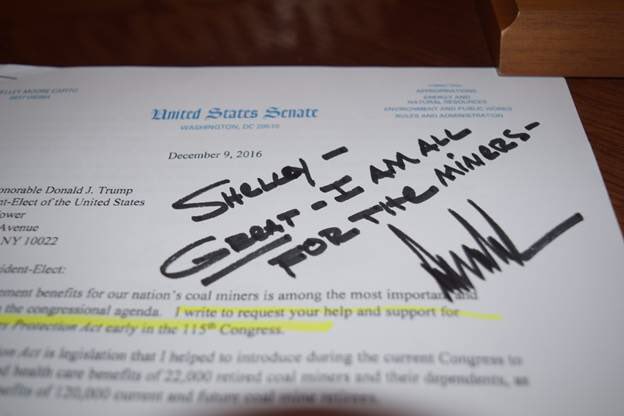 SHELLEY MOORE CAPITO
WEST VIRGINIA
COMMITTEES
APPROPRIATIONS
ENERGY AND
NATURAL RESOURCES
ENVIRONMENT AND PUBLIC WORKS
RULES AND ADMINISTRATION
United States Senate
WASHINGTON, DC 20510
December 9, 2016
SHELLEY -
GREAT - I AM ALL
FOR THE MINERS -
onorable Donald J. Trump
nt-Elect of the United States
ower
Avenue
NY 10022
ident-Elect:
ement benefits for our nation's coal miners is among the most important and
n the congressional agenda. I write to request your help and support for
Protection Act early in the 115th Congress.
on Act is legislation that I helped to introduce during the current Congress to
d health care benefits of 22,000 retired coal miners and their dependents, as
nefits of 120,000 current and future coal mine retirees.